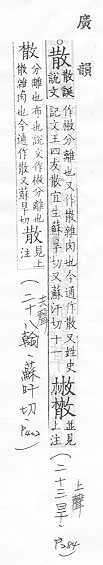 廣韻
。散散誕說文作㪔分離也又作㪚雜肉也今通作散又姓史記文王四友散宜生蘇旱切又蘇汗切十一㪔㪚並見上注(二十三旱. P284)上聲
散分離也布也說文作㪔分離也㪚雜肉也今通作散又蘇旱切㪚見上注(二十八翰.蘇旰切. P402)去聲